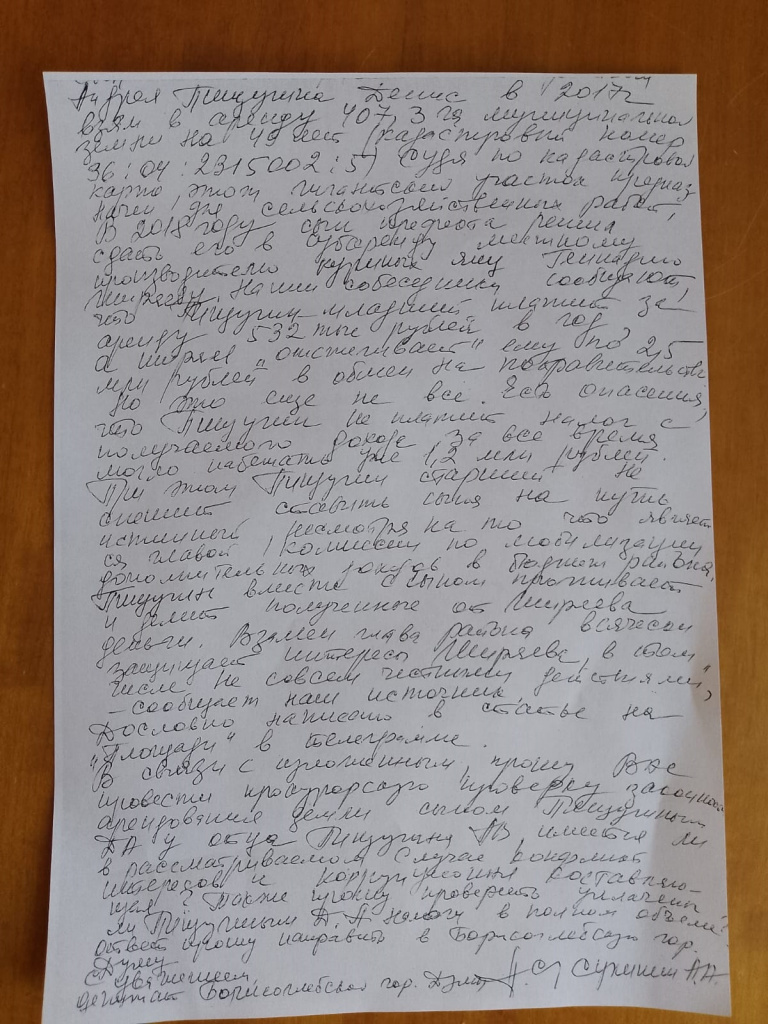 Андрея Пищугина Денис в 2017г
взял в аренду 407,3 га муниципальной
земли на 49 лет (кадастровый номер
36:04:2315002:5) Судя по кадастровой
карте, этот гигантский участок предназ
начен для сельскохозяйственных работ,
В 2018 году сын префекта решил
сдать его в субаренду местному
производителю куриных яиц Геннадию
Ширяеву. Наши собеседники сообщают,
что Пищугин-младший платит за
аренду 532 тыс рублей в год,
а Ширяев "отстегивает" ему по 2,5
млн рублей в обмен на покровительство
Но это еще не все. Есть опасения,
что Пищугин не платит налог с
получаемого дохода, за все время
могло набежать уже 1,2 млн рублей.
При этом Пищугин старший не
спешит ставить сына на путь
истинный несмотря на то что являет
ся главой комиссии по мобилизации
дополнительных доходов в бюджет района.
Пищугин вместе с сыном проживает
и делит полученные от Ширяева
деньги. Взамен глава района всячески
защищает интересы Ширяева, в том
числе не совсем честными действиями",
- сообщает наш источник,
Дословно написано в статье на
"Площади" в телеграмме.
В связи с изложенным, прошу Вас
провести прокурорскую проверку законности
арендования земли сыном Пищугиным
ДА у отца Пищугина АВ, имеется ли
в рассматриваемом случае конфликт
интересов и коррупционная составляю-
щая? Также прошу проверить уплачены
ли Пищугиным Д.А. налоги в полном объеме?
ответ прошу направить в Борисоглебскую гор.
Думу
С уважением,
депутат Борисоглебской гор. Думы Сухинин А.А.